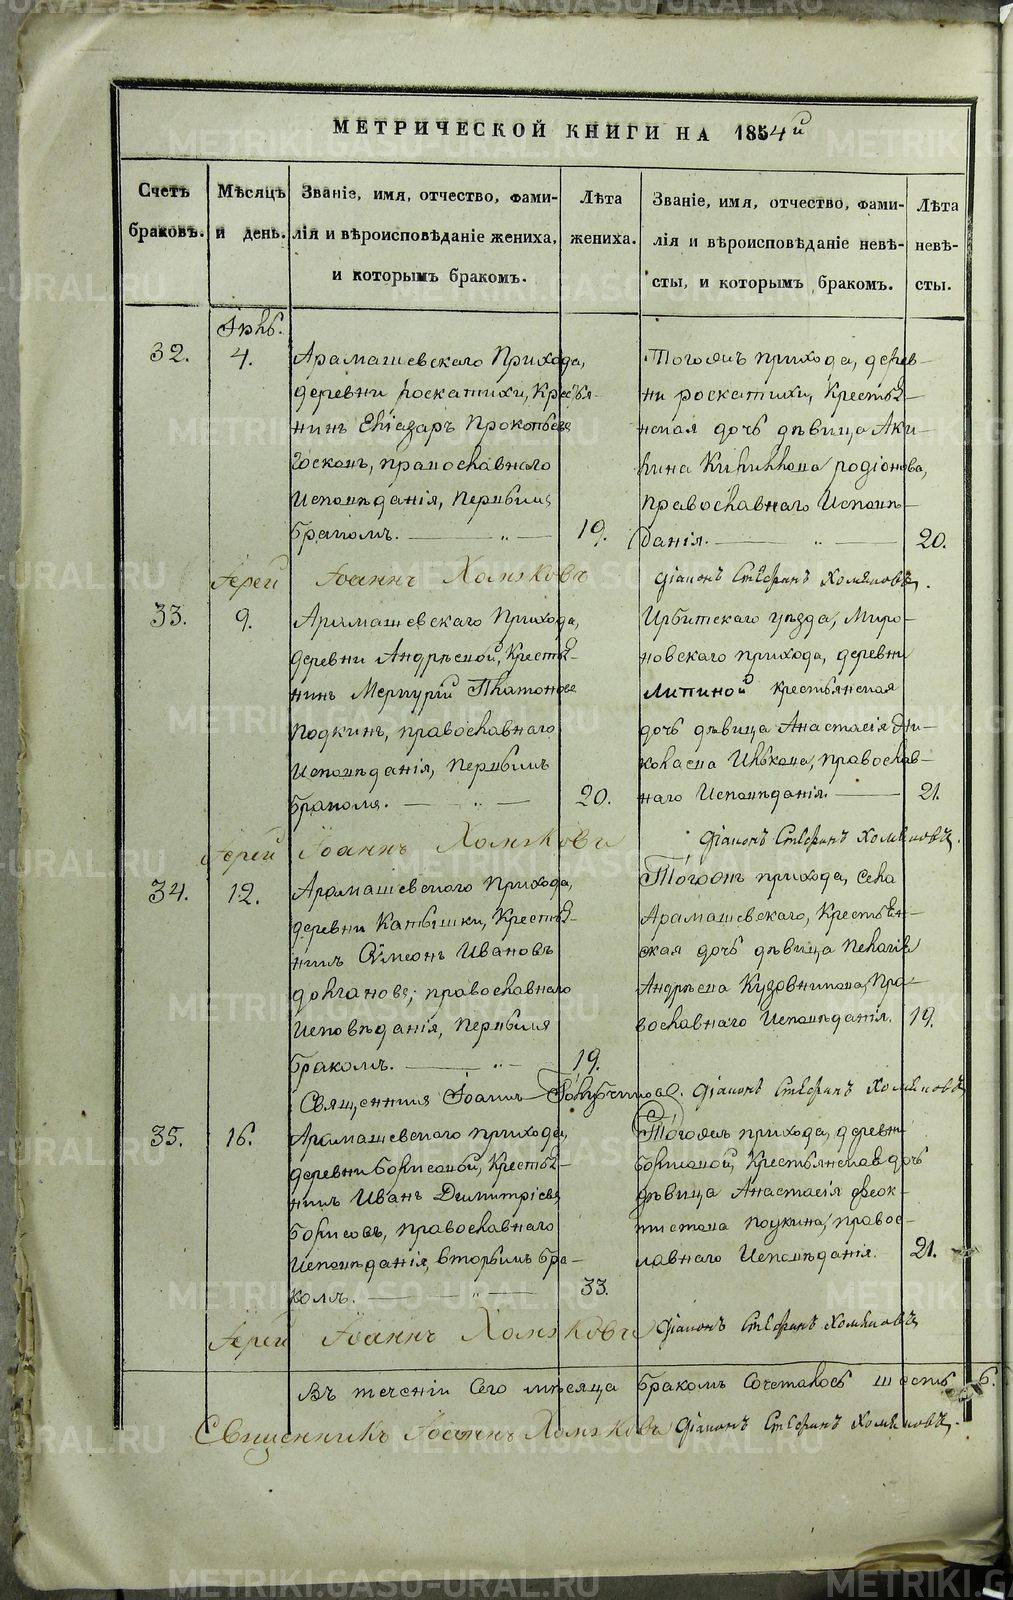 МЕТРИЧЕСКОЙ КНИГИ НА 1854й
Счетъ браковъ.
Мѣсяцъ и день.
Званіе, имя, отчество, фами-
лія и вѣроисповѣданіе жениха,
и которымъ бракомъ.
Лѣта жениха.
Званіе, имя, отчество, фами-
лія и вѣроисповѣданіе невѣ-
сты, и которымъ бракомъ.
Лѣта невѣ-
сты.
32.
4.
Арамашевскаго Прихода,
деревни роскатихи, Крестья-
нинъ Еліазаръ Прокопьевъ
православнаго
Исповѣданія, Первымъ
бракомъ. — „ —
19.
Тогожъ прихода, дерев-
ни роскатихи, Крестья-
нская дочь дѣвица Аки-
лина Кирилова родіонова,
Православнаго Исповѣ-
данія. — „ —
20.
Іерей Іоаннъ Хомяковъ
Діаконъ Стефанъ Хомяковъ.
33.
9.
Арамашевскаго Прихода,
деревни Андрѣевой, Крестья-
нинъ Меркурій Платоновъ
Подкинъ, православнаго
Исповѣданія, Первымъ
бракомъ. — „ —
20.
Ирбитскаго уѣзда, Миро-
новскаго прихода, деревни
Липиной крестьянская
дочь дѣвица Анастасія Ни-
колаева Илькова, Православ-
наго Исповѣданія. —
21.
Іерей Іоаннъ Хомяковъ
Діаконъ Стефанъ Хомяковъ.
34.
12.
Арамашевскаго Прихода,
деревни Катышки, Крестья-
нинъ Симеонъ Ивановъ
Долгановъ, православнаго
Исповѣданія, Первымъ
бракомъ. — „ —
19.
Тогожъ прихода, села
Арамашевскаго, Крестьян-
ская дочь дѣвица Пелагія
Андрѣева Кузовникова, Пра-
вославнаго Исповѣданія.
19.
Священникъ Іоаннъ
Діаконъ Стефанъ Хомяковъ
35.
16.
Арамашевскаго прихода,
деревни Борисовой, Крестья-
нинъ Иванъ Димитріевъ
Борисовъ, православнаго
Исповѣданія, вторымъ бра-
комъ. — „ —
33.
Тогожъ прихода, деревни
Борисовой, Крестьянская дочь
дѣвица Анастасія Феок-
тистова правос-
лавнаго Исповѣданія.
21.
Іерей Іоаннъ Хомяковъ
Діаконъ Стефанъ Хомяковъ
Въ теченіи Сего мѣсяца бракомъ Сочеталось шесть 6.
Священникъ Іоаннъ Хомяковъ Діаконъ Стефанъ Хомяковъ.
METRIKI.GASO-URAL.RU